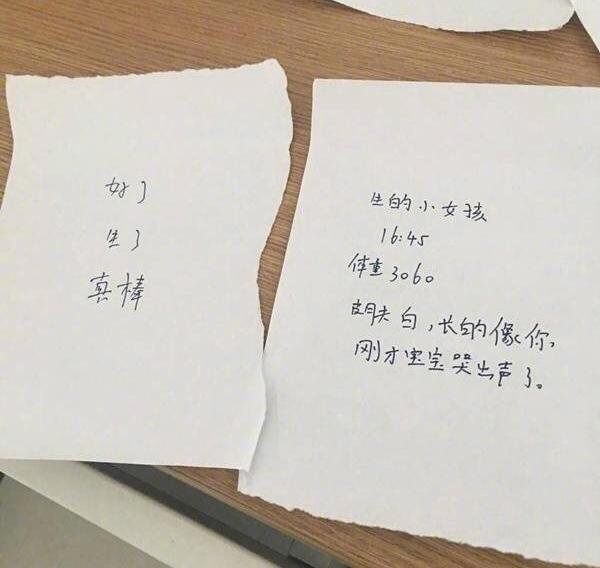 好了
生了
真棒
生的小女孩
16:45
体重3060
皮肤白，长的像你，
刚才宝宝哭出声了。